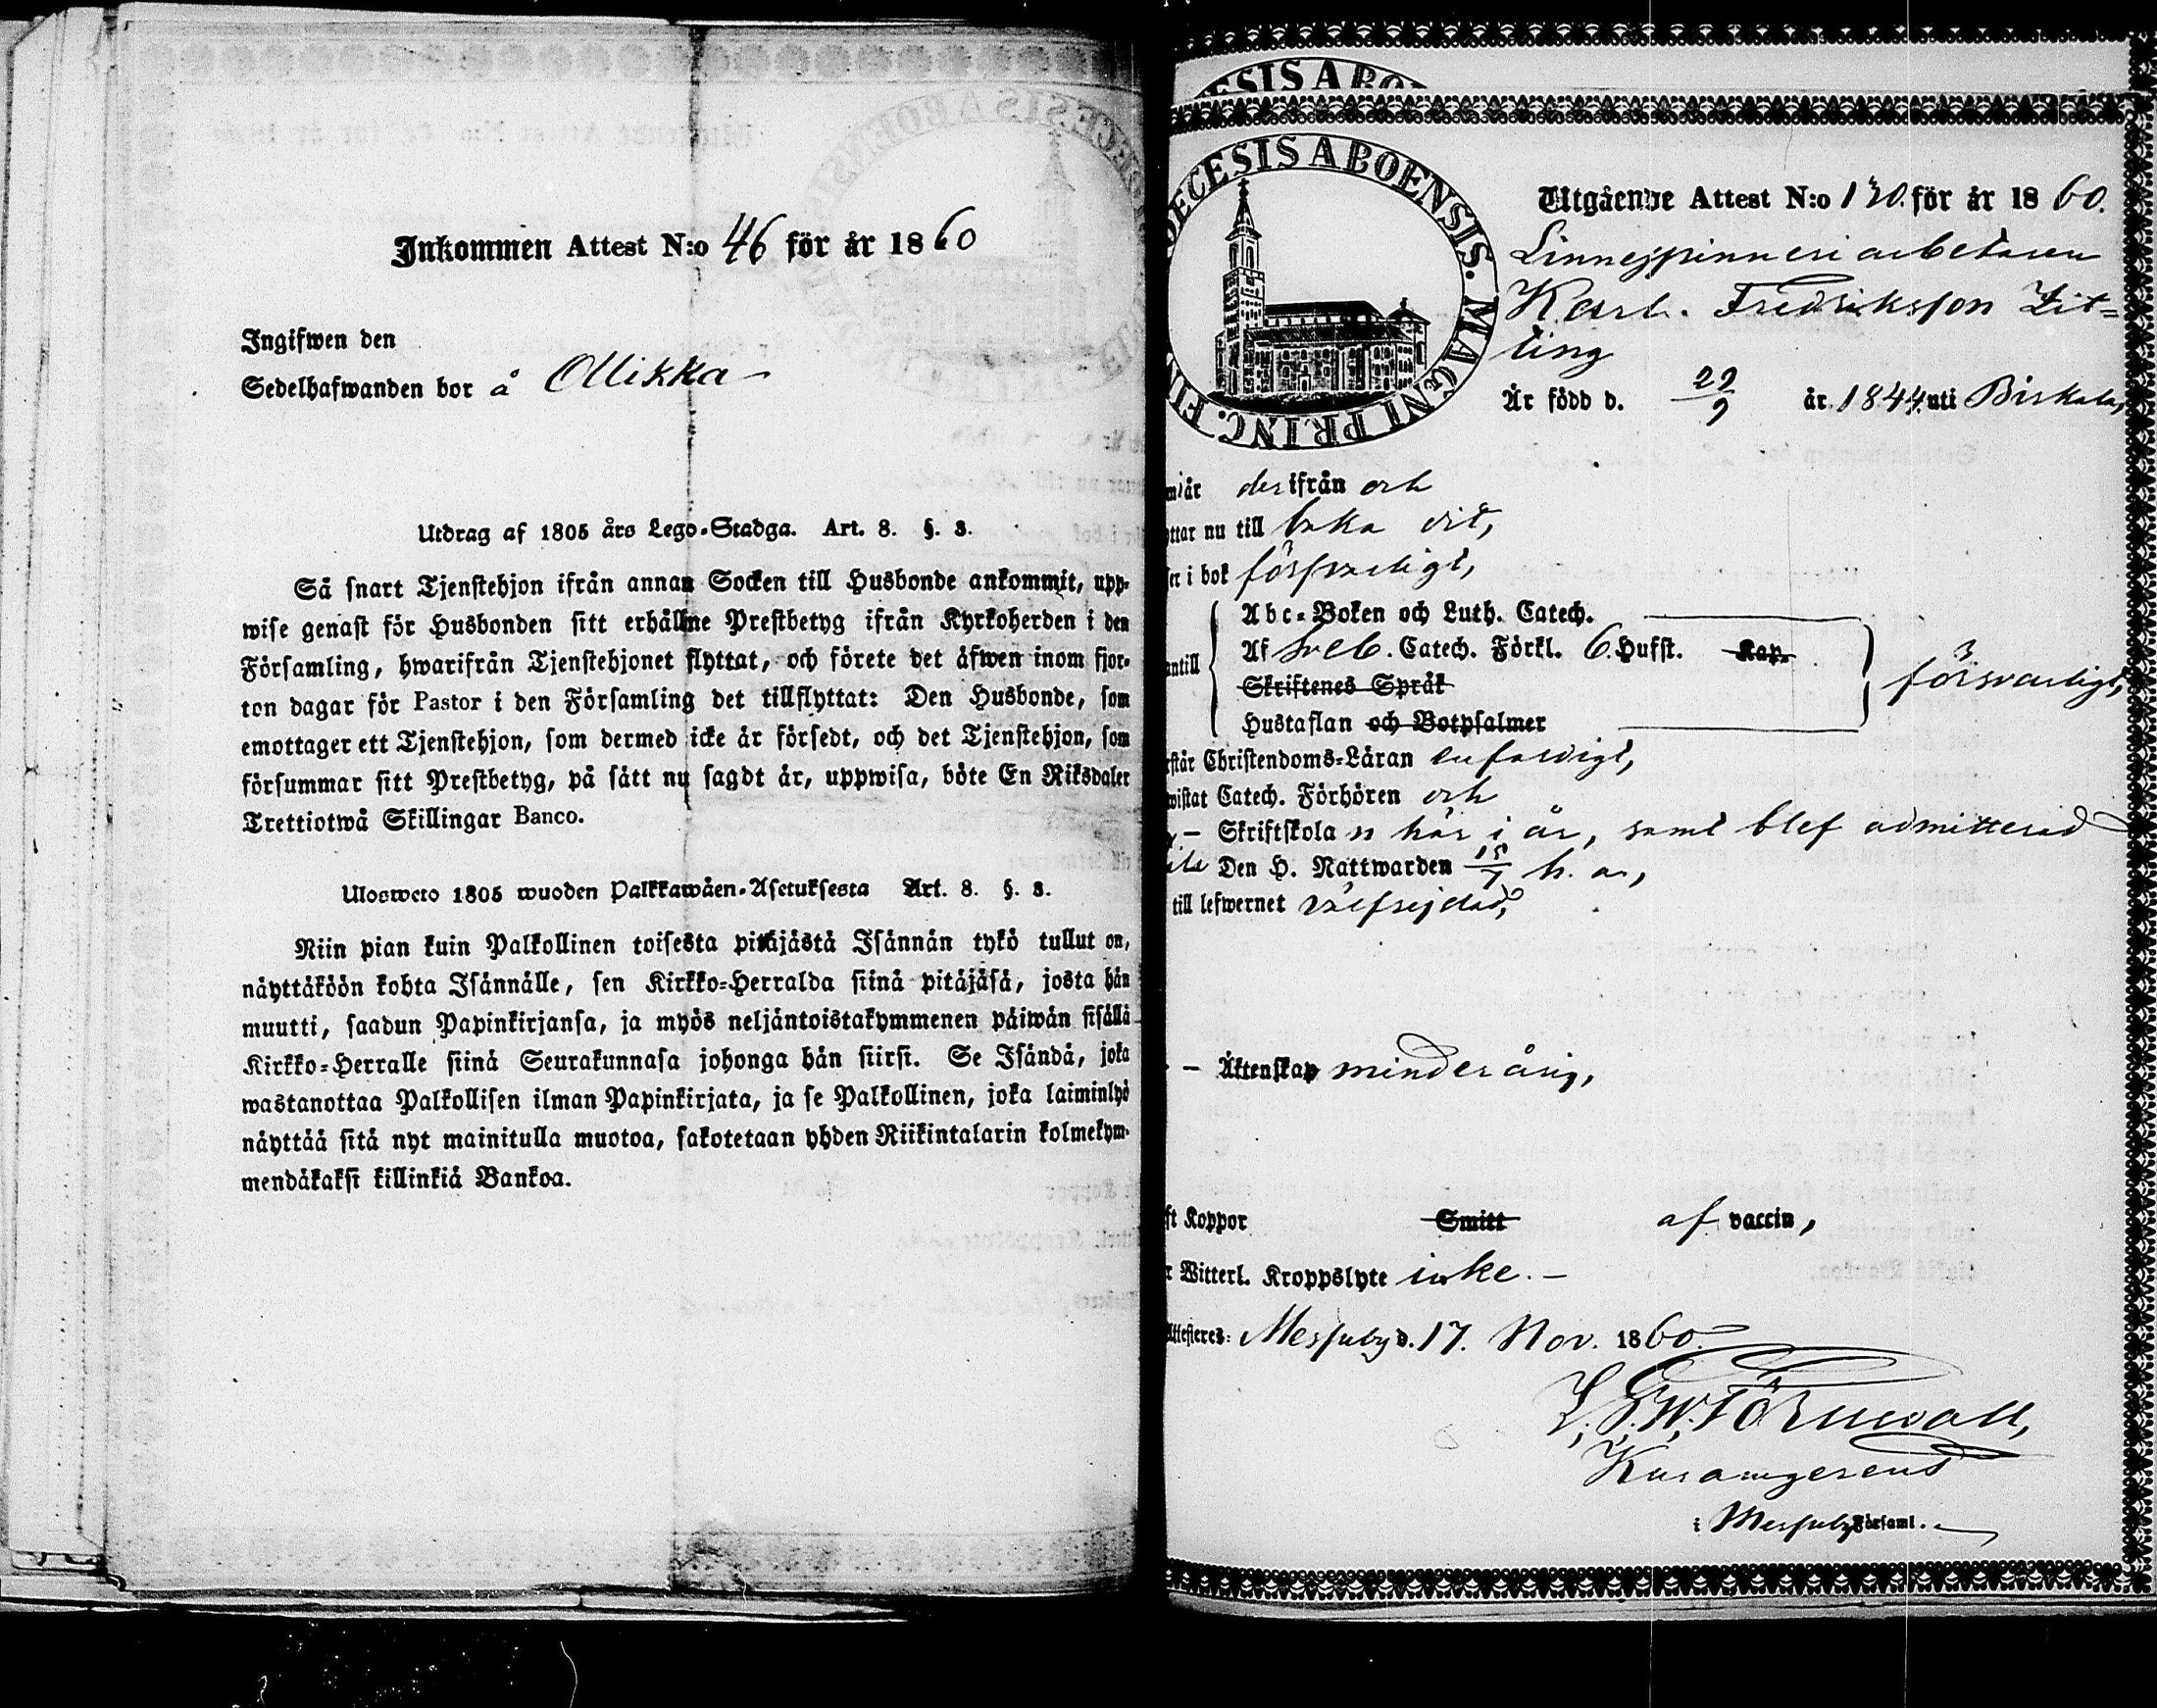 Inkommen Attest N:o 46 för år 1860
Ingifwen den
Sedelhafwanden bor å Ollikka
Utdrag af 1805 års Lego-Stadga. Art. 8. §. 3.
Så snart Tjenstehjon ifrån annan Socken till Husbonde ankommit, upp-
wise genast för Husbonden sitt erhållne Prestbetyg ifrån Kyrkoherden i den
Församling, hwarifrån Tjenstehjonet flyttat, och förete det äfwen inom fjor-
ton dagar för Pastor i den Församling det tillflyttat: Den Husbonde, som
emottager ett Tjenstehjon, som dermed icke är försedt, och det Tjenstehjon, som
försummar sitt Prestbetyg, på sätt nu sagdt är, uppwisa, böte En Riksdaler
Trettiotwå Skillingar Banco.
Ulosweto 1805 wuoden Palkkawäen-Asetuksesta Art. 8. §. 3.
Niin pian kuin Palkollinen toisesta pitäjästä Isännän tykö tullut on,
näyttäköön kohta Isännälle, sen Kirkko-Herralda siinä pitäjäsä, josta hän
muutti, saadun Papinkirjansa, ja myös neljäntoistakymmenen päiwän sisällä
Kirkko-Herralle siinä Seurakunnasa johonga hän siirsi. Se Isändä, joka
wastanottaa Palkollisen ilman Papinkirjata, ja se Palkollinen, joka laiminlyö
näyttää sitä nyt mainitulla muotoa, sakotetaan yhden Riikintalarin kolmekym-
mendäkaksi killinkiä Bankoa.
ESIS ABO
OECESIS ABOENSIS. MAGNI PRINC. FIN
Utgående Attest N:o 130. för år 1860.
Linnespinneri arbetaren
Karl. Fredriksson Lit=
ting
Är född d. 29/9 år 1844 uti Birkala,
är derifrån och
ttar nu till baka dit,
er i bok försvarligt,
Abc-Boken och Luth. Catech.
antill Af Sveb. Catech. Förkl. 6. Hufst. Kap. försvarligt,
Skriftenes Språk
Hustaflan och Botpsalmer
står Christendoms-Läran enfaldigt,
wistat Catech. Förhören och
– Skriftskolan här i år, samt blef admitterad
Den H. Nattwarden 15/7 h. a.,
till lefwernet välfrejdad,
– Äktenskap minderårig,
ft Koppor Smitt af vaccin,
Witterl. Kroppslyte icke. –
Attesteres: Messuby d. 17. Nov. 1860.
L. G. W. Törnwall,
Kuramgerens
i Messuby Församl.